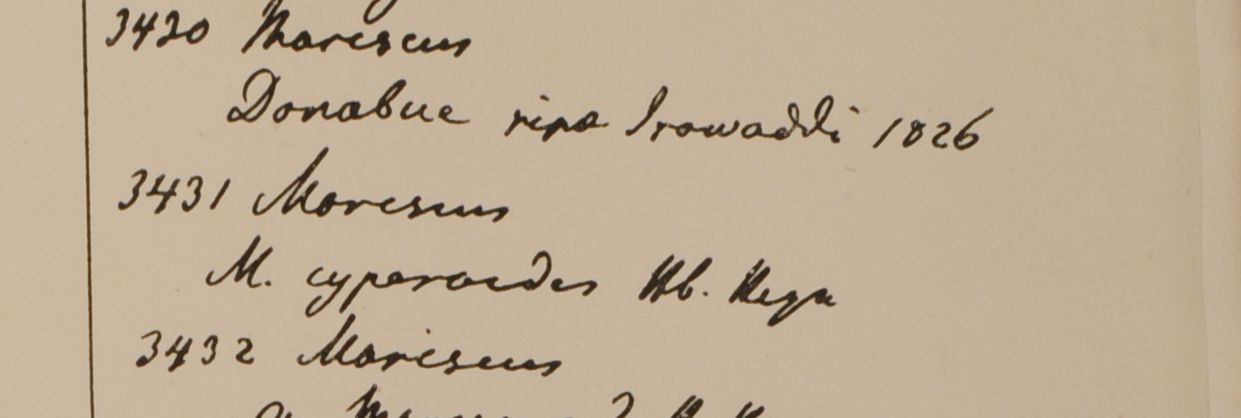 3430 Mariscus
Donabue ripa Irawaddi 1826
3431 Mariscus
M. cyperoides Hb. Heyn
3432 Mariscus